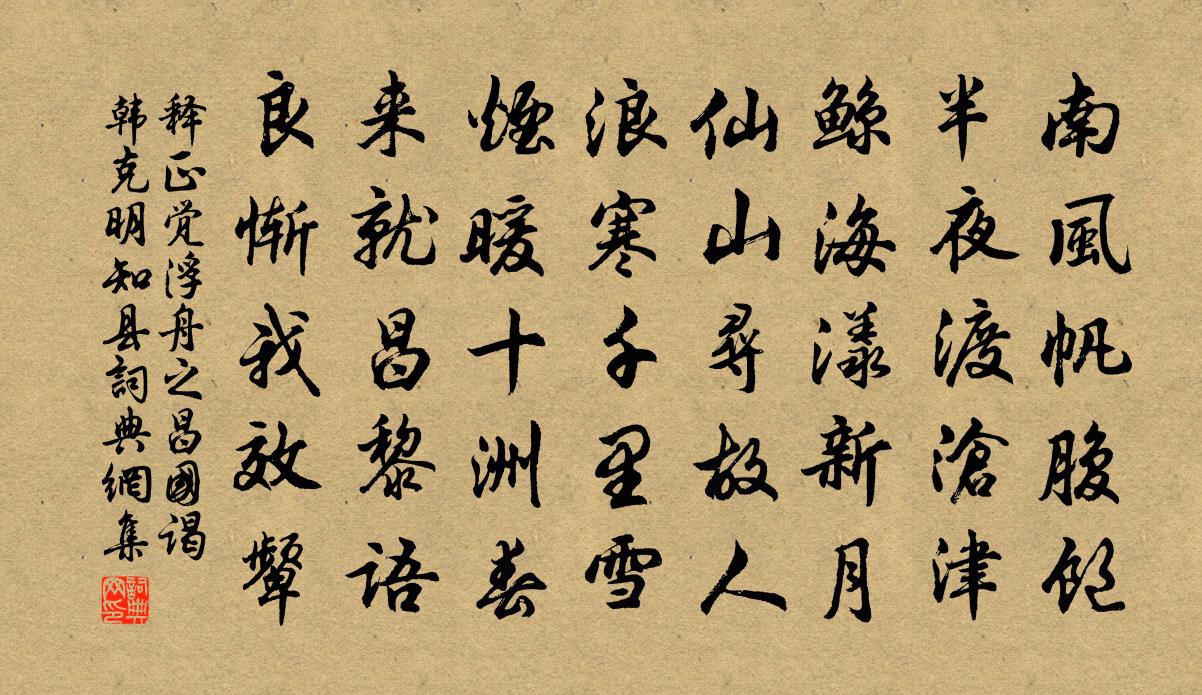 南風帆腹飽
半夜渡滄津
鲸海漾新月
仙山尋故人
浪寒千里雪
煙暖十洲春
来就昌黎語
良慚我效顰
释正觉浮舟之昌國谒
韩克明知县詞典網集
詞典网印